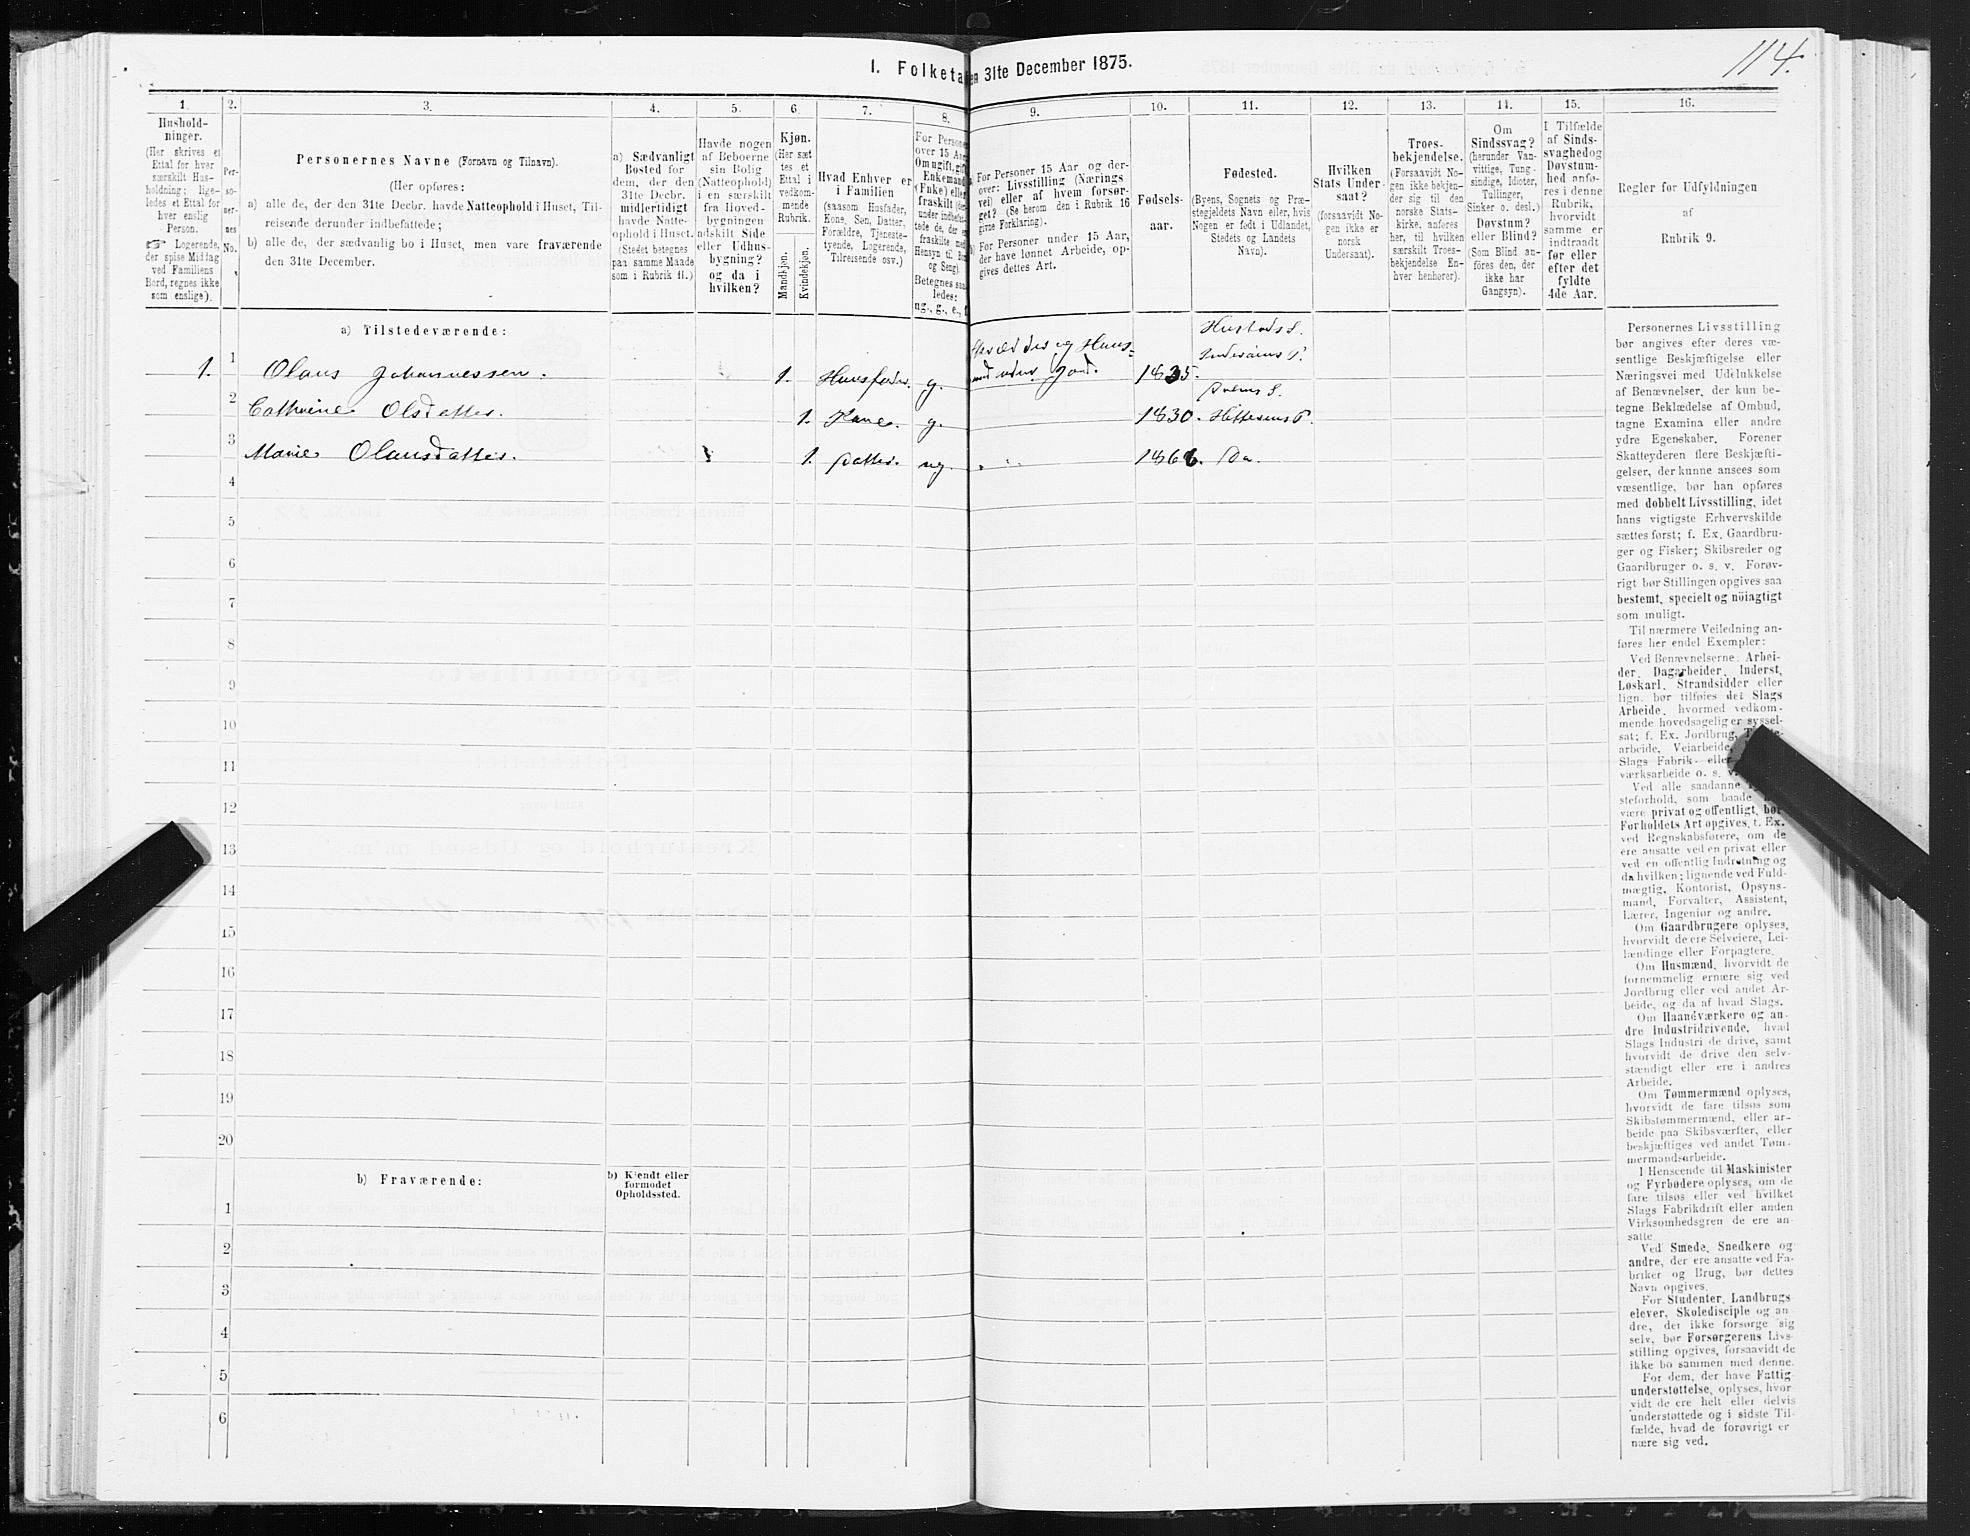 114.
I. Folketa en 31te December 1875.
1. 2. 3. 4. 5. 6. 7. 8. 9. 10. 11. 12. 13. 14. 15. 16.
Hushold-
ninger.
(Her skrives et
Ettal for hver
særskilt Hus-
holdning; lige-
ledes et Ettal for
hver enslig
Person.
☞ Logerende,
der spise Middag
ved Familiens
Bord, regnes ikke
som enslige).
Per-
so-
ner-
nes
No.
Personernes Navne (Fornavn og Tilnavn).
(Her opføres:
a) alle de, der den 31te Decbr. havde Natteophold i Huset, Til-
reisende derunder indbefattede;
b) alle de, der sædvanlig bo i Huset, men vare fraværende
den 31te December.
a) Sædvanligt
Bosted for
dem, der den
31te Decbr.
midlertidigt
havde Natte-
ophold i Huset.
(Stedet betegnes
paa samme Maade
som i Rubrik 11.)
Havde nogen
af Beboerne
sin Bolig
(Natteophold)
i en særskilt
fra Hoved-
bygningen
adskilt Side
eller Udhus-
bygning?
og da i
hvilken?
Kjøn.
(Her sæt
tes et
Ettal i
vedkom-
mende
Rubrik.
Mandkjøn.
Kvindekjøn.
Hvad Enhver er
i Familien
(saasom Husfader,
Kone, Søn, Datter,
Forældre, Tjeneste-
tyende, Logerende,
Tilreisende osv.)
For Persone
over 15 Aa
Om ugift, gift
Enkemand
(Enke) elle
fraskilt (de
under indbefat
tede de, der e
fraskilte med
Hensyn til Bo
og Seng).
Betegnes saa
ledes:
ug., g., e., f
a) For Personer 15 Aar og der-
over: Livsstilling (Nærings
vei) eller af hvem forsør-
get? (Se herom den i Rubrik 16
givne Forklaring).
b) For Personer under 15 Aar,
der have lønnet Arbeide, op-
gives dettes Art.
Fødsels-
aar.
Fødested.
(Byens, Sognets og Præ-
stegjeldets Navn eller, hvis
Nogen er født i Udlandet,
Stedets og Landets
Navn).
Hvilken
Stats Under-
saat?
(forsaavidt No-
gen ikke er
norsk
Undersaat).
Troes-
bekjendelse.
(Forsaavidt No-
gen ikke bekjen-
der sig til den
norske Stats-
kirke, anføres
her, til hvilken
særskilt Troes-
bekjendelse En-
hver henhører).
Om
Sindssvag?
(herunder Van-
vittige, Tung-
sindige, Idioter,
Tullinger,
Sinker o. desl.)
Døvstum?
eller Blind?
(Som Blind an-
føres den, der
ikke har
Gangsyn).
I Tilfælde
af Sinds-
svaghed og
Døvstum-
hed anfø-
res i denne
Rubrik,
hvorvidt
samme er
indtraadt
før eller
efter det
fyldte
4de Aar.
Regler for Udfyldningen
af
Rubrik 9.
a) Tilstedeværende:
1. 1 Olaus Johannessen. 1. Huusfader g. 1835.
2 Cathrine Olsdatter. 1. Kone. g. 1830. Hitterens P.
3 Marie Olausdatter. 1. Datter. ug. 1866. Do.
4
5
6
7
8
9
10
11
12
13
14
15
16
17
18
19
20
b) Fraværende:
b) Kjendt eller
formodet
Opholdssted.
1
2
3
4
5
6
Personernes Livsstilling
bør angives efter deres væ-
sentlige Beskjæftigelse eller
Næringsvei med Udelukkelse
af Benævnelser, der kun be-
tegne Beklædelse af Ombud,
tagne Examina eller andre
ydre Egenskaber. Forener
Skatteyderen flere Beskjæfti-
gelser, der kunne ansees som
væsentlige, bør han opføres
med dobbelt Livsstilling, idet
hans vigtigste Erhvervskilde
sættes først; f. Ex. Gaardbru-
ger og Fisker; Skibsreder og
Gaardbruger o. s. v. Forøv-
rigt bør Stillingen opgives saa
bestemt, specielt og nöiagtigt
som muligt.
Til nærmere Veiledning an-
føres her endel Exempler:
Ved Benævnelserne: Arbei-
der, Dagarbeider, Inderst,
Løskarl, Strandsidder eller
lign. bør tilføies det Slags
Arbeide, hvormed vedkom-
mende hovedsagelig er syssel-
sat; f. Ex. Jordbrug,
arbeide, Veiarbeide,
Slags Fabrik- eller
værksarbeide o. s. v.
Ved alle saadanne
steforhold, som baade
være privat og offentligt, bør
Forholdets Art opgives, t. Ex.
ved Regnskabsførere, om de
ere ansatte ved en privat eller
ved en offentlig Indretning og
da hvilken; lignende ved Fuld-
mægtig, Kontorist, Opsyns-
mand, Forvalter, Assistent,
Lærer, Ingeniør og andre.
Om Gaardbrugere oplyses,
hvorvidt de ere Selveiere, Lei-
lændinge eller Forpagtere.
Om Husmænd, hvorvidt de
fornemmelig ernære sig ved
Jordbrug eller ved andet Ar-
beide, og da af hvad Slags.
Om Haandværkere og an-
dre Industridrivende, hvad
Slags Industri de drive, samt
hvorvidt de drive den selv-
stændigt eller ere i andres
Arbeide.
Om Tømmermænd oplyses,
hvorvidt de fare tilsøs som
Skibstømmermænd, eller ar-
beide paa Skibsværfter, eller
beskjæftiges ved andet Tøm-
mermandsarbeide.
I Henseende til Maskinister
og Fyrbødere oplyses, om de
fare tilsøs eller ved hvilket
Slags Fabrikdrift eller anden
Virksomhedsgren de ere an-
satte.
Ved Smede, Snedkere og
andre, der ere ansatte ved Fa-
briker og Brug, bør dettes
Navn opgives.
For Studenter, Landbrugs-
elever, Skoledisciple og an-
dre, der ikke forsørge sig
selv, bør Forsørgerens Livs-
stilling opgives, forsaavidt de
ikke bo sammen med denne.
For dem, der have Fattig-
understøttelse, oplyses, hvor-
vidt de ere helt eller delvis
understøttede og i sidste Til-
fælde, hvad de forøvrigt er-
nære sig ved.